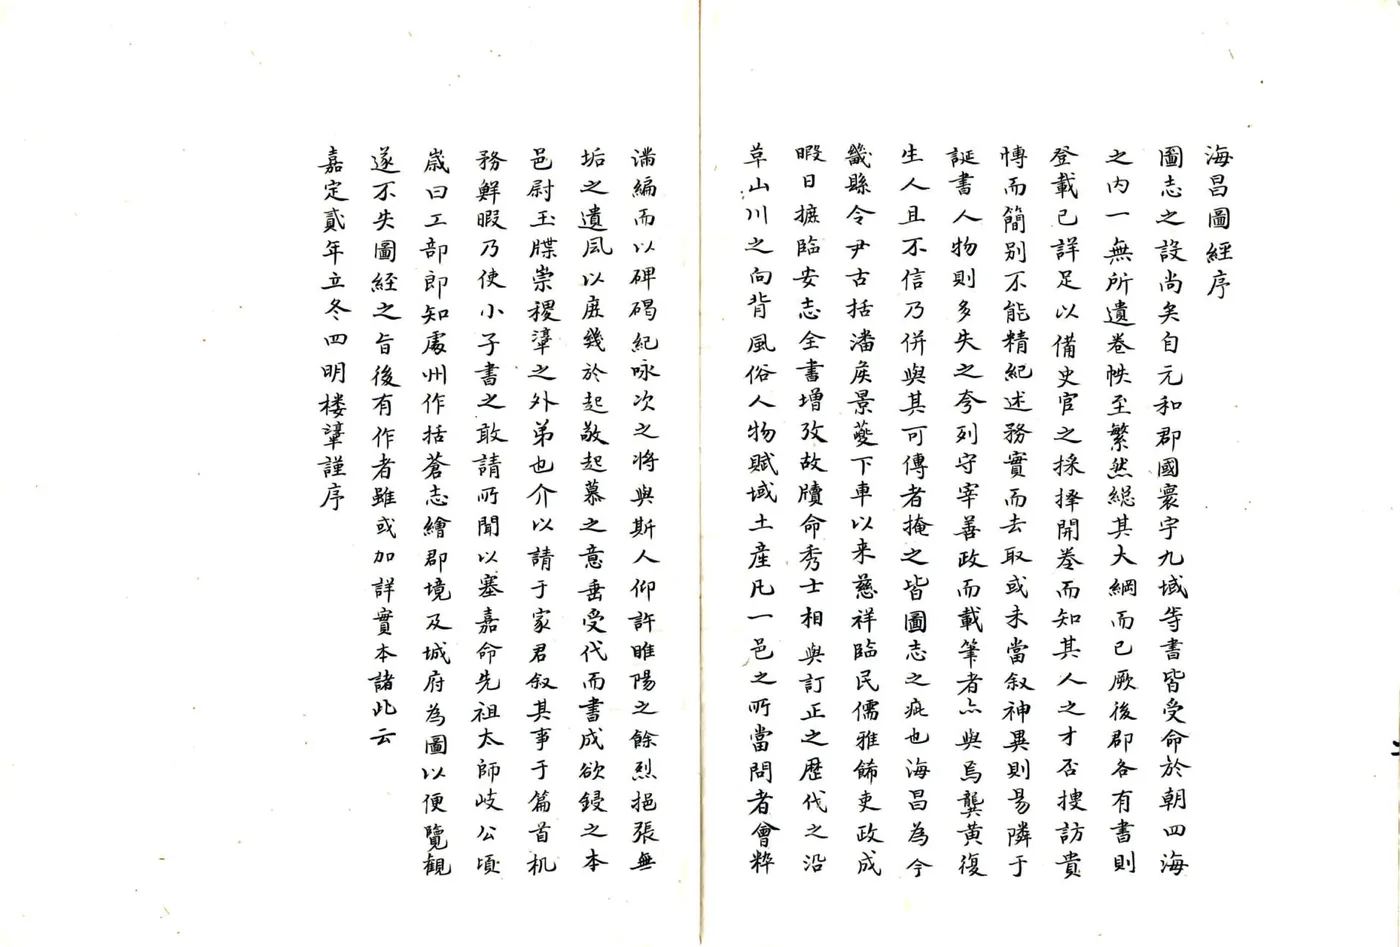 海昌圖經序
圖志之設尚矣自元和郡國寰宇九域等書皆受命於朝四海
之内一無所遺卷帙至繁然総其大綱而已厥後郡各有書則
登載已詳足以備史官之採擇開巻而知其人之才否搜訪貴
博而簡別不能精紀述務實而去取或未當叙神異則易隣于
誕書人物則多失之夸列守宰善政而載筆者亦與焉龔黃復
生人且不信乃併與其可傳者掩之皆圖志之疵也海昌為今
畿縣令尹古括潘矦景夔下車以来慈祥臨民儒雅餙吏政成
暇日摭臨安志全書增攷故牘命秀士相與訂正之歴代之沿
草山川之向背風俗人物賦域土産凡一邑之所當問者會粹
滿編而以碑碣紀咏次之将與斯人仰許睢陽之餘烈挹張無
垢之遺风以庶幾於起敬起慕之意垂受代而書成欲鋟之本
邑尉玉牒崇稷㵂之外弟也介以請于家君叙其事于篇首机
務鮮暇乃使小子書之敢請所聞以塞嘉命先祖太師岐公頃
嵗曰工部郎知處州作括蒼志繪郡境及城府為圖以便覽觀
遂不失圖経之旨後有作者雖或加詳實本諸此云
嘉定貳年立冬四明楼㵂謹序